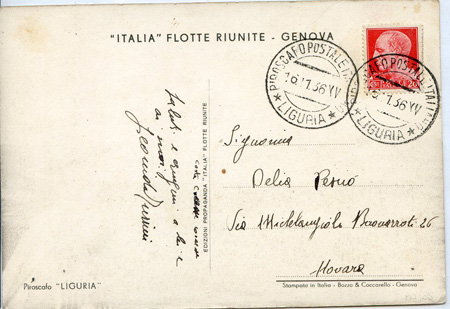 "ITALIA" FLOTTE RIUNITE - GENOVA
PIROSCAFO POSTALE ITALIANO
16.11.36 XV
★ LIGURIA ★
PIROSCAFO POSTALE ITALIANO
16.11.36 XV
★ LIGURIA ★
Saluti e auguri a lei e
ai suoi
EDIZIONI PROPAGANDA "ITALIA" FLOTTE RIUNITE
Signorina
Delia
Via Michelangiolo Buonarroti 26
Novara
Piroscafo "LIGURIA"
Stampata in Italia - Bozzo & Coccarello - Genova